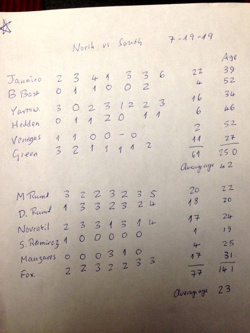 North vs South 7-19-19
Age
Janairo 2 3 4 1 3 3 6 22 39
B Best 0 1 1 0 0 2 4 52
Yarrow 3 0 2 3 1 2 2 3 16 34
Hedden 0 1 1 2 0 1 1 6 46
Venegas 1 1 0 0 - 0 2 52
Green 3 2 1 1 1 1 2 11 27
61 250
Average 42
M Runt 3 2 2 3 2 3 5 20 22
D. Runt 1 3 3 2 3 2 4 18 20
Novratil 2 3 3 1 3 1 4 17 24
S. Ramirez 1 0 0 0 0 0 1 19
Manzanos 0 0 0 3 1 0 4 25
Fox 2 2 3 2 2 3 3 17 31
77 141
Average 23